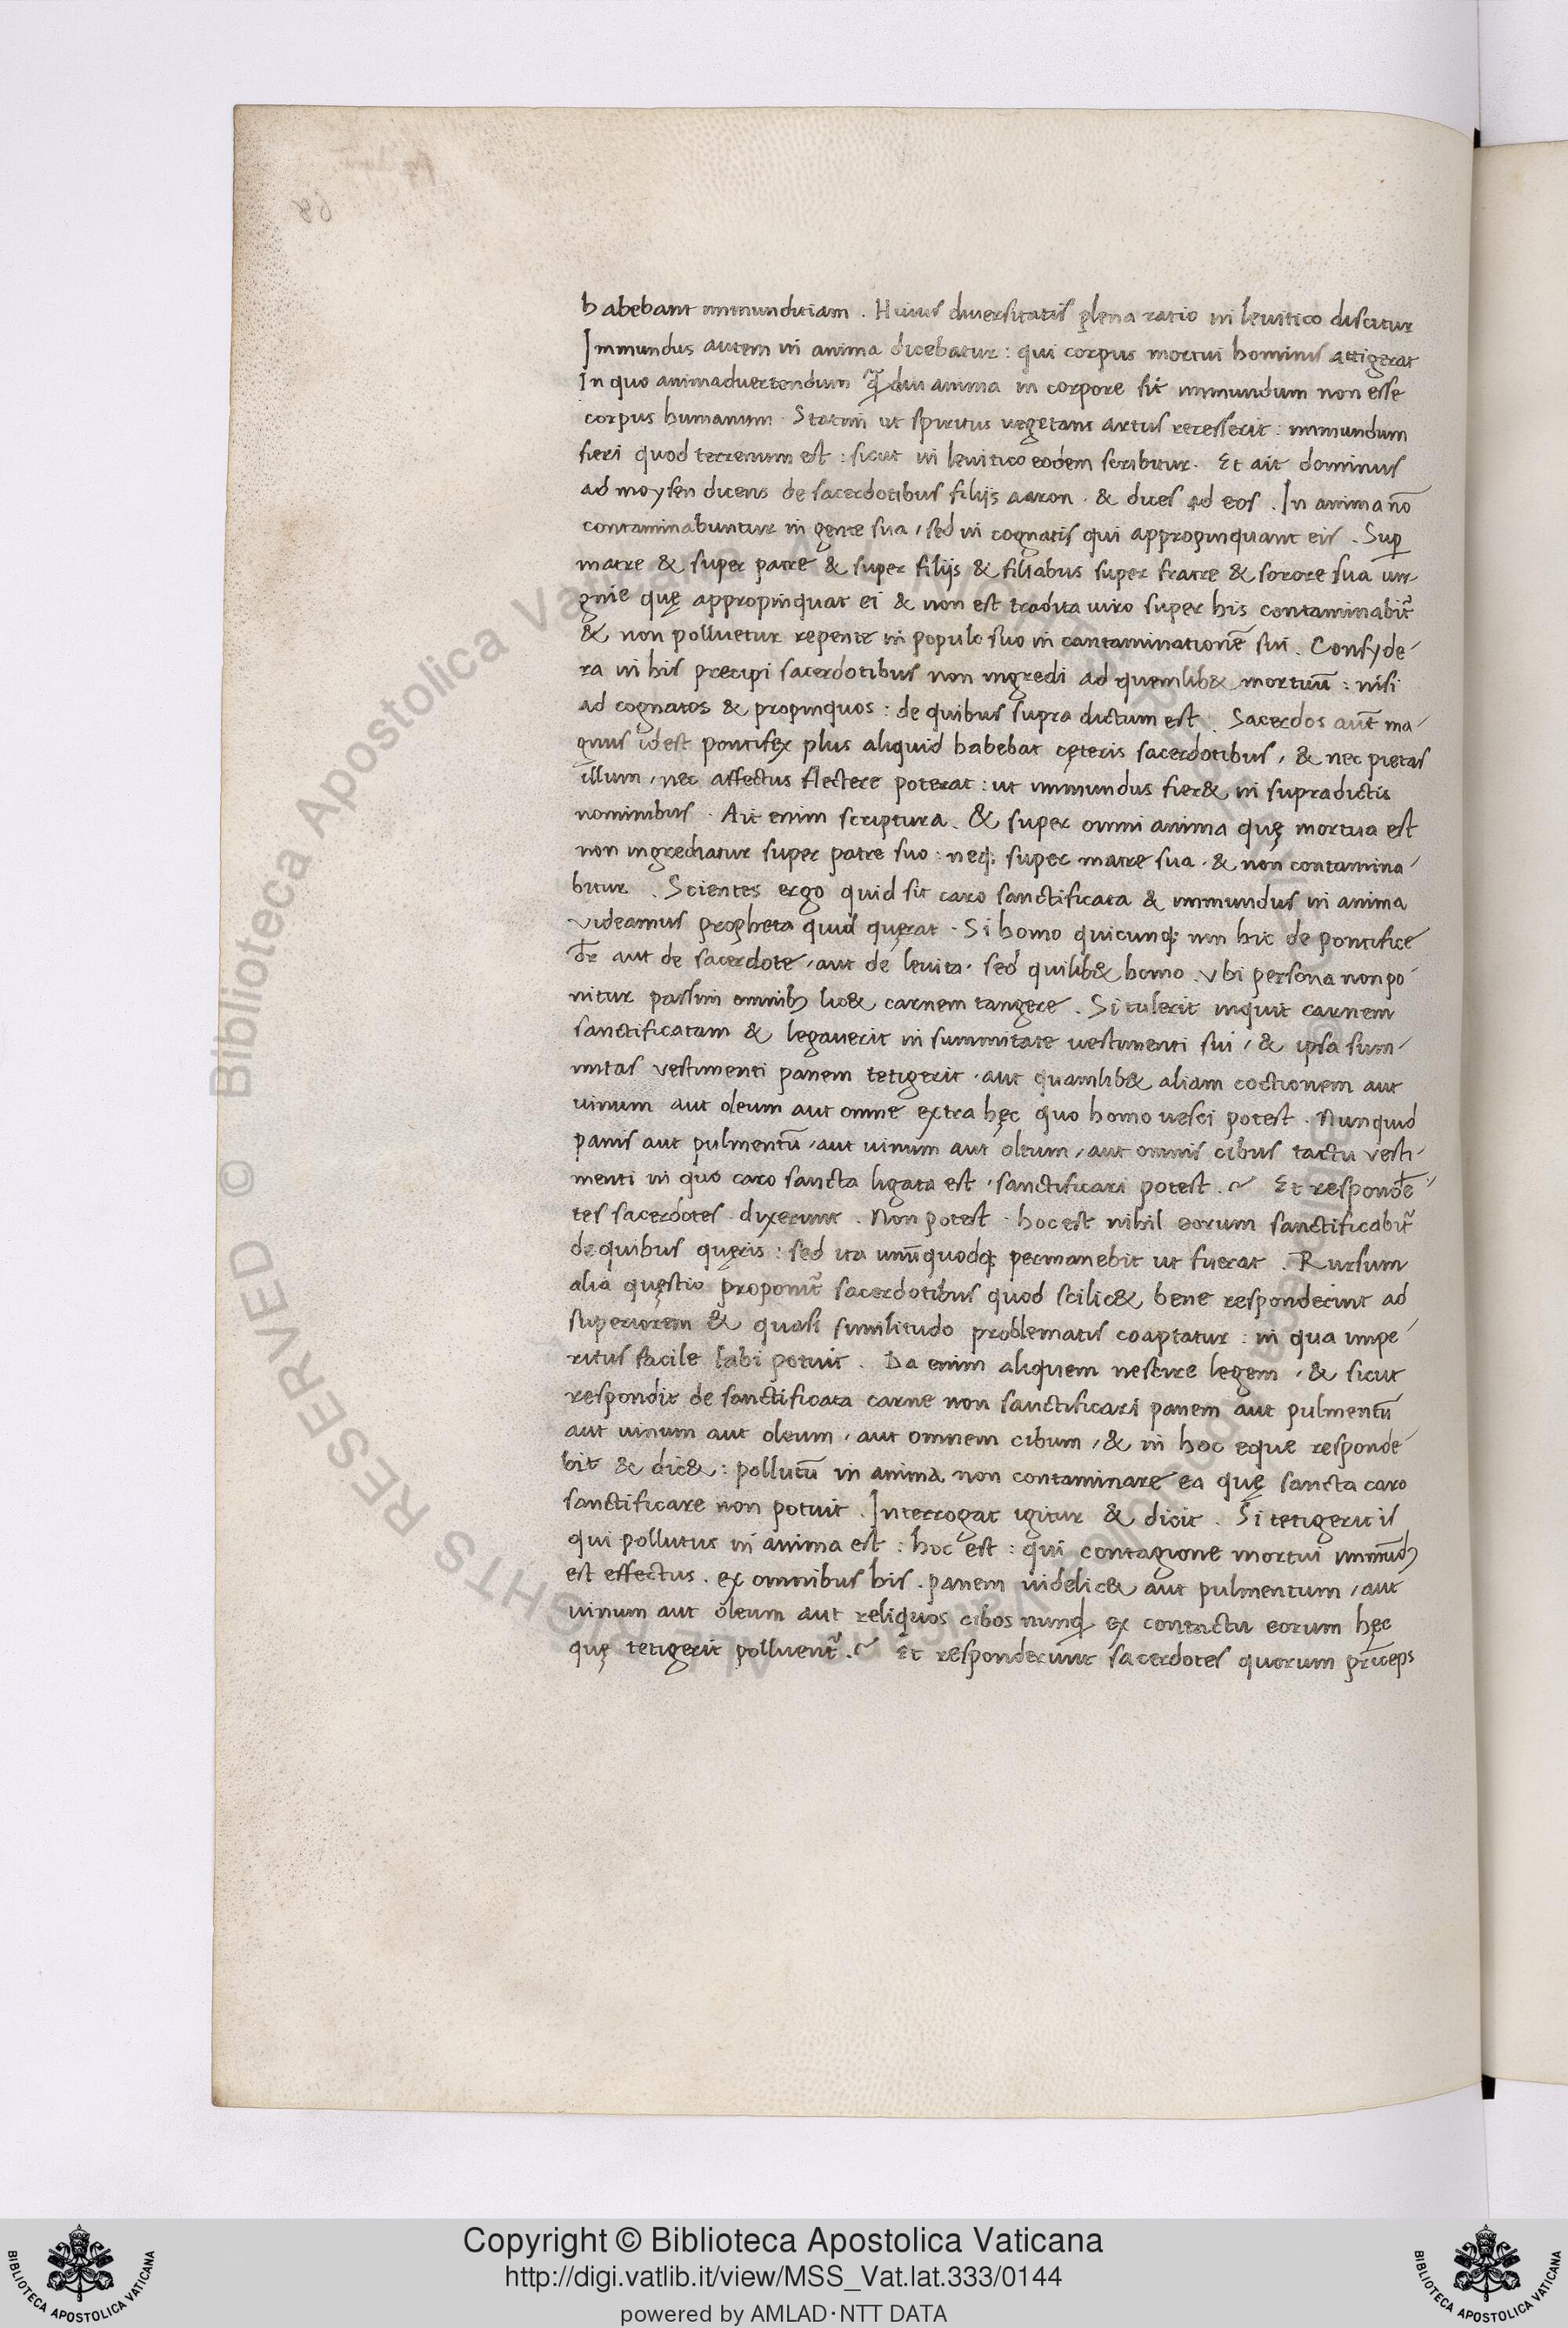 habebant immunditiam . Huius diuersitatis plena ratio in leuitico discitur
Immundus autem in anima dicebatur : qui corpus mortui hominis attigerat
In quo animaduertendum q̃diu anima in corpore sit immundum non esse
corpus humanum . Statim ut spiritus uegetans artus recesserit : immundum
fieri quod terrenum est : sicut in leuitico eodem scribitur . Et ait dominus
ad moysen dicens de sacerdotibus filijs aaron . & dices ad eos . In anima nō
contaminabuntur in gente sua / sed in cognatis qui appropinquant eis . Sup̱
matre & super patre & super filijs & filiabus super fratre & sorore sua uir-
gnie quę appropinquat ei & non est tradita uiro super his contaminabit᷑
& non polluetur repente in populo suo in cantaminationē sui . Consyde-
ra in his precipi sacerdotibus non ingredi ad quemlib& mortuū : nisi
ad cognatos & propinquos : de quibus supra dictum est . Sacerdos aūt ma-
gnus idest pontifex plus aliquid habebat cęteris sacerdotibus / & nec pietas
illum / nec affectus flectere poterat : ut immundus fier& in supradictis
nominibus . Ait enim scriptura . & super omni anima quę mortua est
non ingrediatur super patre suo : neq; super matre sua . & non contamina-
bitur . Scientes ergo quid sit caro sanctificata & immundus in anima
videamus propheta quid quęrat . Si homo quicunq; non hic de pontifice
dr̄ aut de sacerdote / aut de leuita . sed quilib& homo . vbi persona non po-
nitur passim omnibꝫ lic& carnem tangere . Si tulerit inquit carnem
sanctificatam & legauerit in summitate uestimenti sui / & ipsa sum-
mitas vestimenti panem tetigerit . aut quamlib& aliam coctionem aut
uinum aut oleum aut omne extra hęc quo homo uesci potest . Nunquid
panis aut pulmentū / aut uinum aut oleum / aut omnis cibus tactu vesti-
menti in quo caro sancta ligata est . sanctificari potest . ~ Et respondē-
tes sacerdotes dixerunt . Non potest . hoc est nihil eorum sanctificabit᷑
de quibus quęris : sed ita unūquodq; permanebit ut fuerat . Rursum
alia quęstio proponit᷑ sacerdotibus quod scilic& bene responderint ad
superiorem & quasi similitudo problematis coaptatur : in qua impe-
ritus facile labi potuit . Da enim aliquem nescire legem . & sicut
respondit de sanctificata carne non sanctificari panem aut pulmentū
aut uinum aut oleum . aut omnem cibum / & in hoc eque responde-
bit & dic& : pollutū in anima non contaminare ea quę sancta caro
sanctificare non potuit . Interrogat igitur & dicit . Si tetigerit is
qui pollutus in anima est : hoc est : qui contagione mortui immūdꝫ
est effectus . ex omnibus his . panem uidelic& aut pulmentum / aut
uinum aut oleum aut reliquos cibos nunqd ex contactu eorum hęc
quę tetigerit polluent᷑ . ~ Et responderunt sacerdotes quorum pr̄iceps
Copyright © Biblioteca Apostolica Vaticana
http://digi.vatlib.it/view/MSS_Vat.lat.333/0144
powered by AMLAD·NTT DATA